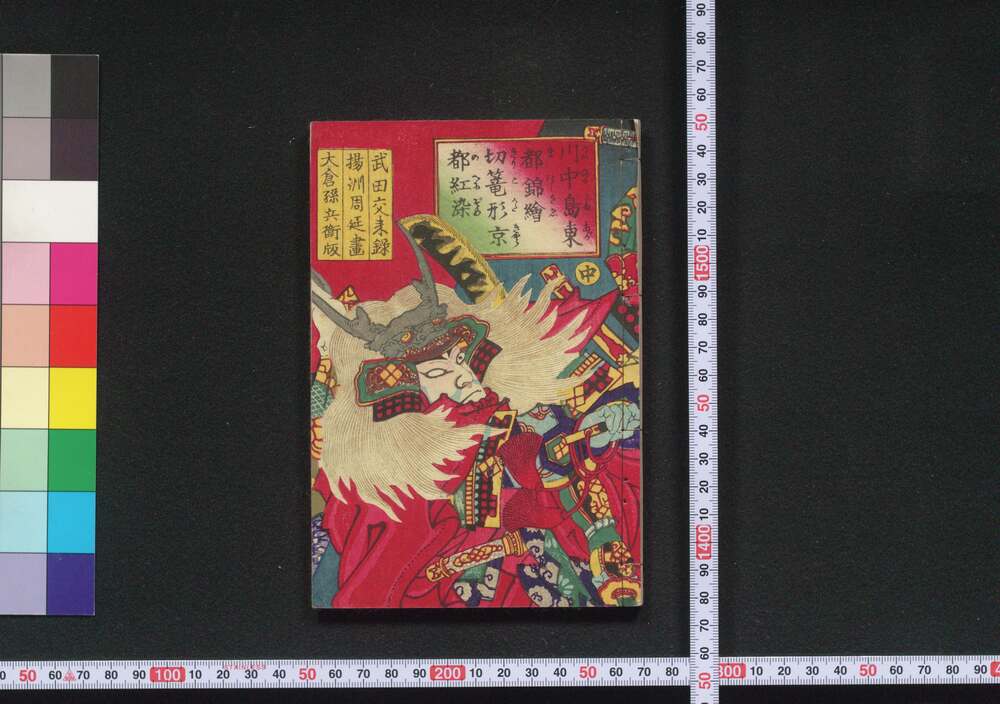 川中島東
都錦繪
切篭形京
都紅染
中
武田交来録
揚洲周延畫
大倉孫兵衛版
50 60 70 80 90 100 10 20 30 40 50 60 70 80 90 200 10 20 30 40 50 60 70 80 300 10 20 30 40 50 60 70 80 90
90 80 70 60 50 40 30 20 10 1500 90 80 70 60 50 40 30 20 10 1400 90 80 70 60 50